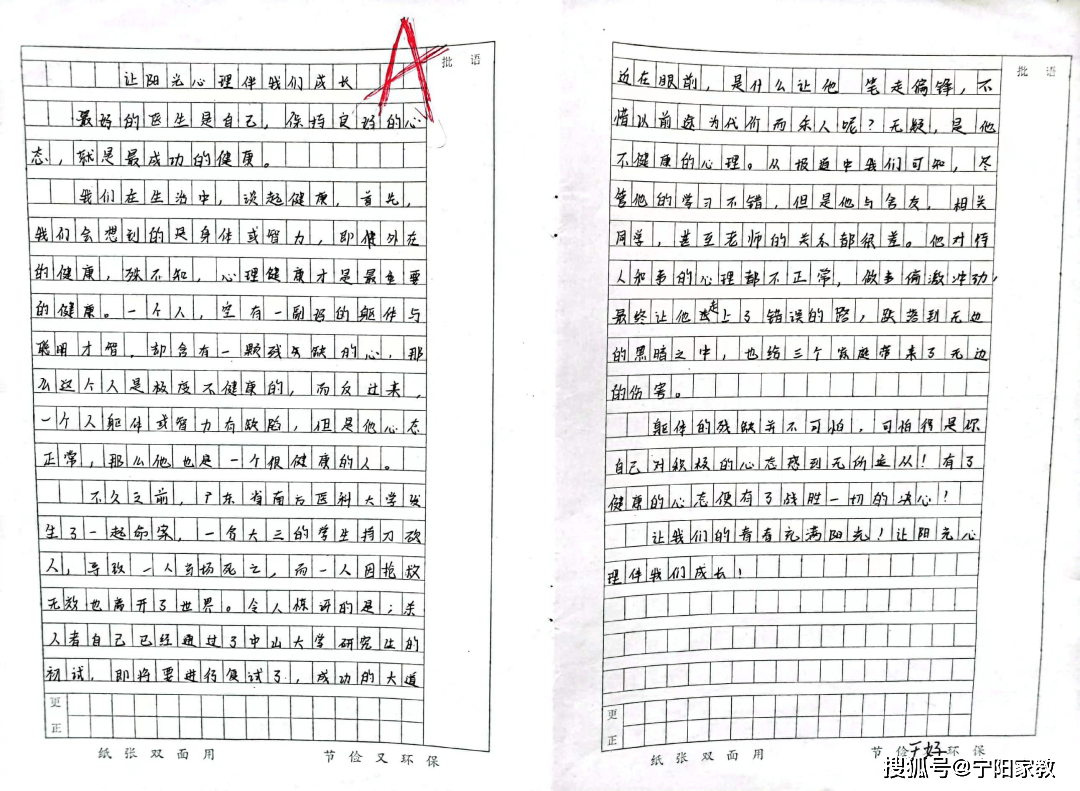 A
批语
让阳光心理伴我们成长
最好的医生是自己，保持良好的心
态，就是最成功的健康。
我们在生活中，谈起健康，首先，
我们会想到的是身体或智力，即健外在
的健康，殊不知，心理健康才是最重要
的健康。一个人，空有一副好的躯体与
聪明才智，却含有一颗残缺的心，那
么这个人是极度不健康的，而反过来，
一个人躯体或智力有缺陷，但是他心态
正常，那么他也是一个很健康的人。
不久之前，广东省南方医科大学发
生了一起命案，一名大三的学生持刀砍
人，导致一人当场死亡，而一人因抢救
无效也离开了世界。令人惊讶的是；杀
人者自己已经通过了中山大学研究生的
初试，即将要进行复试了，成功的大道
更正
纸张双面用
节俭又环保
批语
近在眼前，是什么让他笔走偏锋，不
惜以前途为代价而杀人呢？无疑，是他
不健康的心理。从报道中我们可知，尽
管他的学习不错，但是他与舍友，相关
同学，甚至老师的关系都很差。他对待
人和事的心理都不正常，做事偏激冲动，
最终让他走上了错误的路，跌落到无边
的黑暗之中，也给三个家庭带来了无边
的伤害。
躯体的残缺并不可怕，可怕得是你
自己对积极的心态感到无所适从！有了
健康的心态便有了战胜一切的决心！
让我们的青春充满阳光！让阳光心
理伴我们成长！
更正
纸张双面用
节俭又环保
搜狐号@宁阳家教